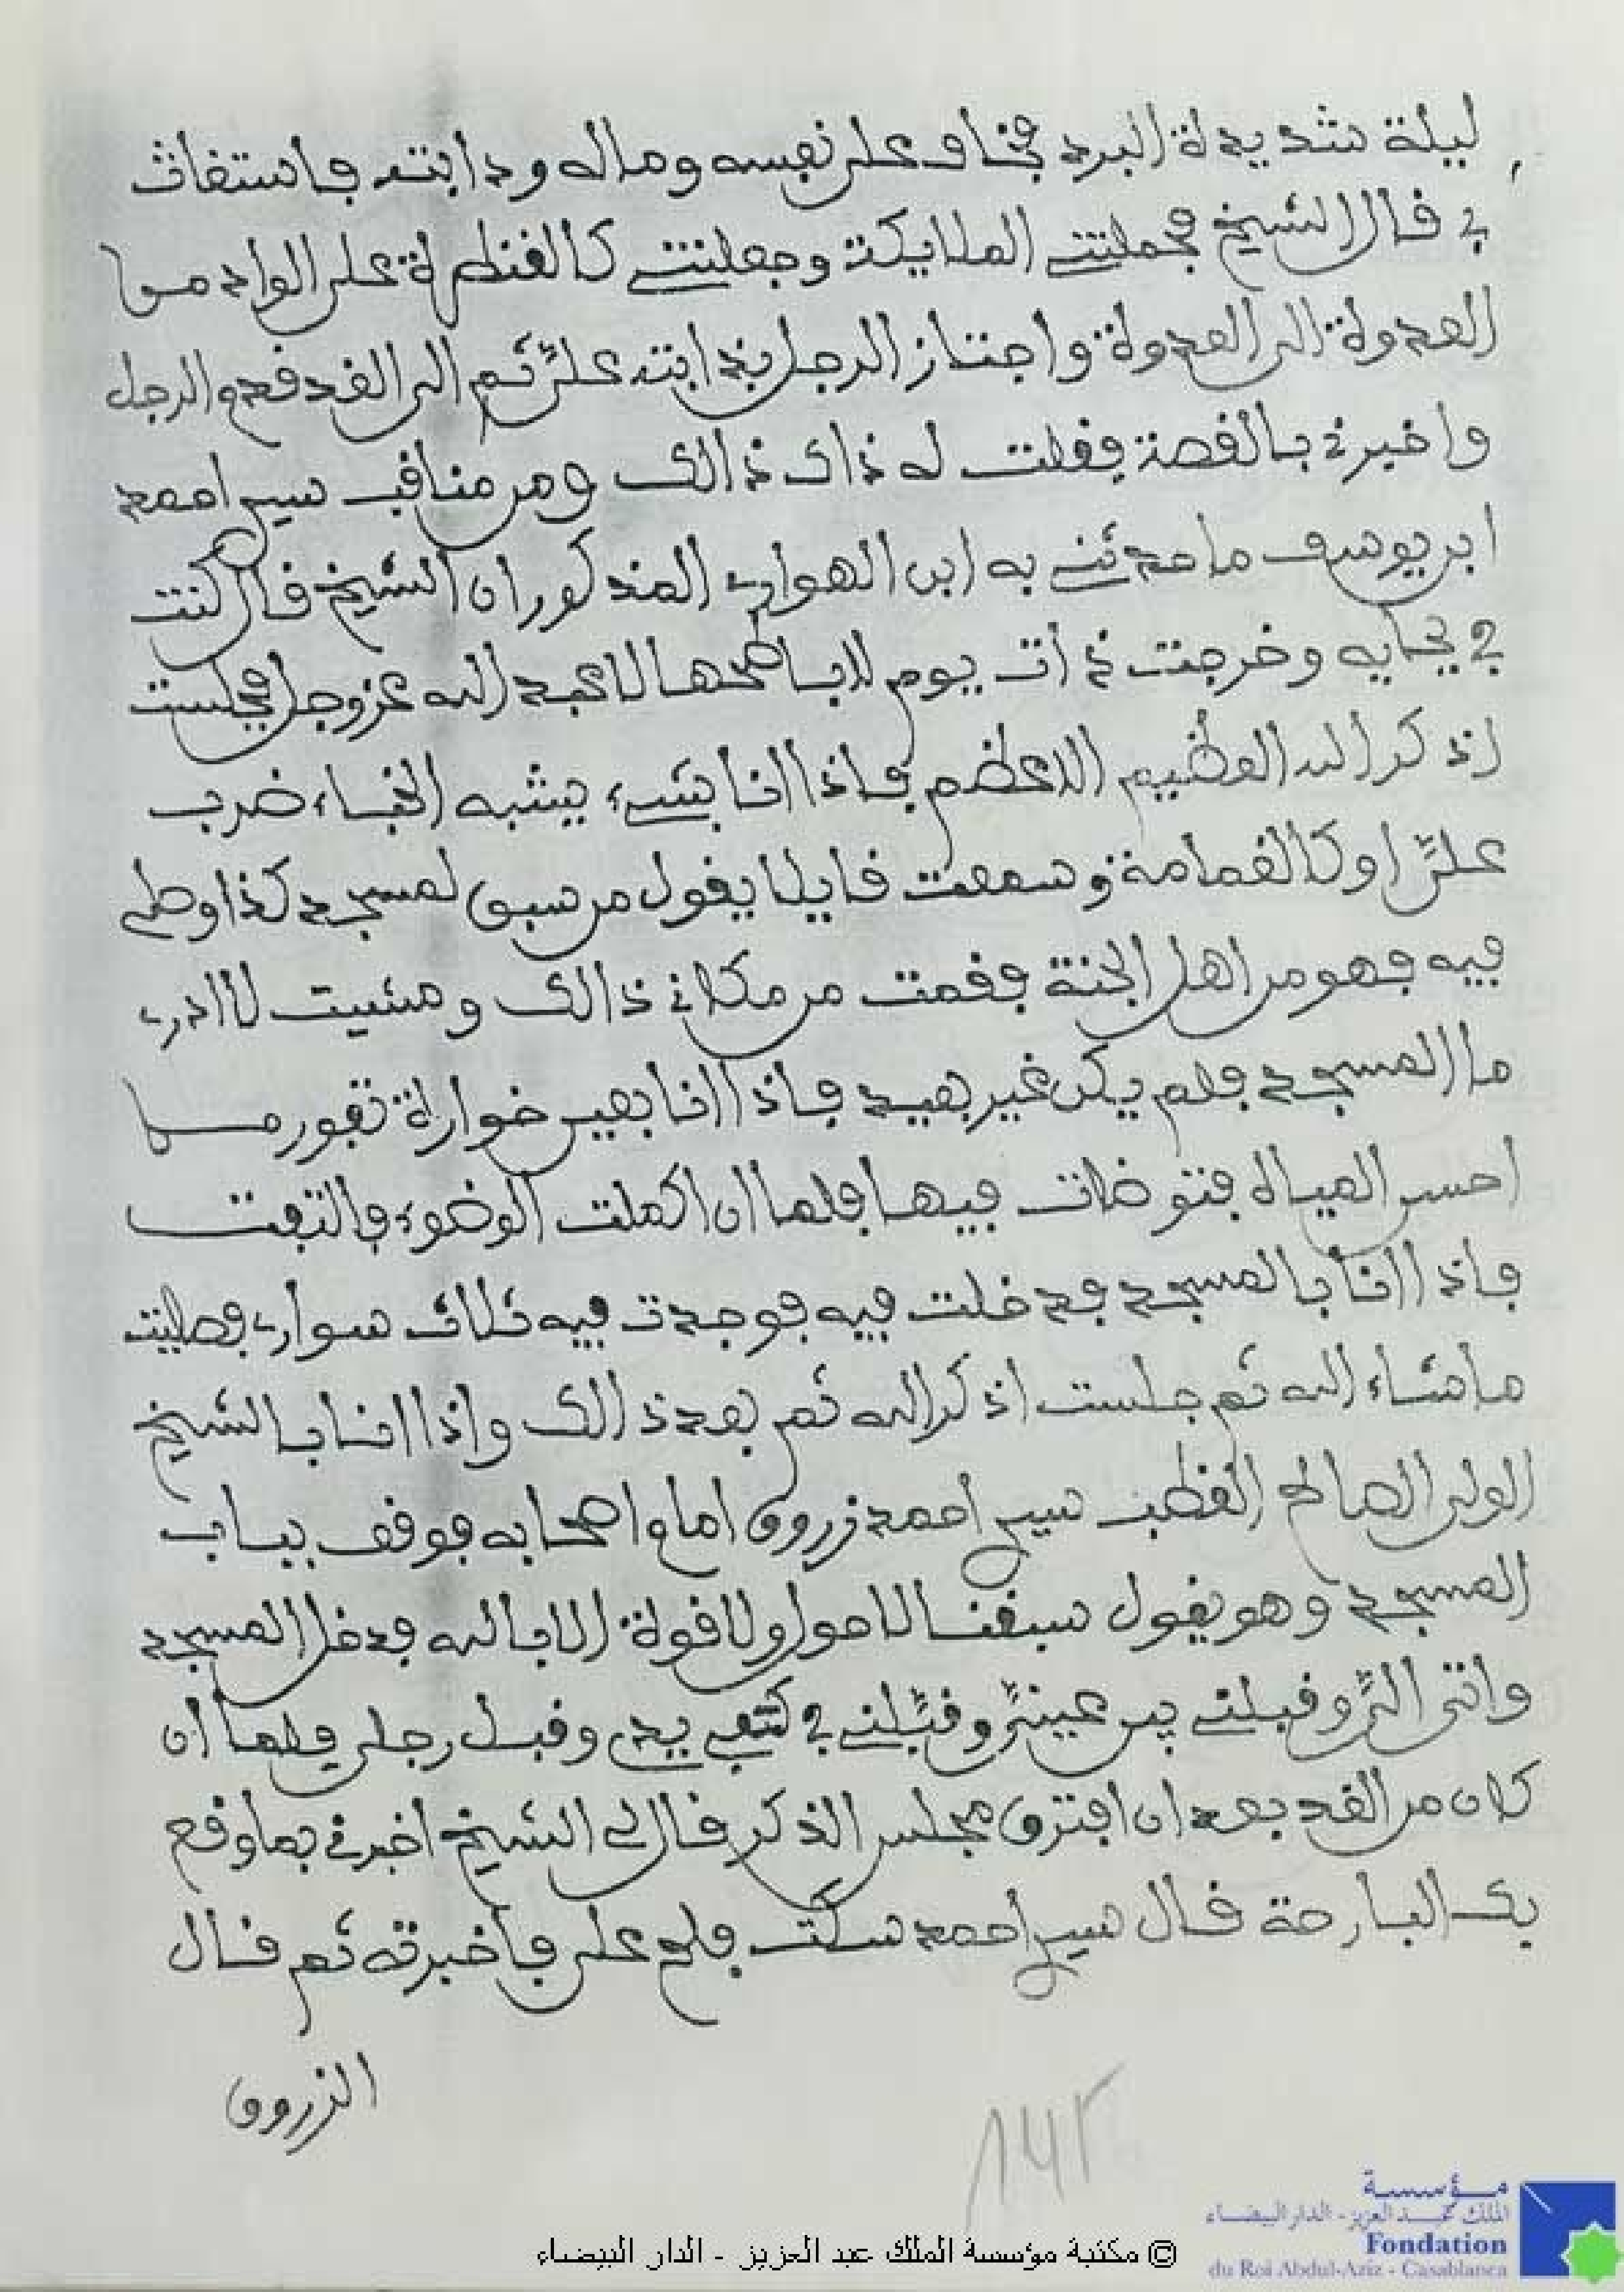 ليلة شديدة البرد فخاف على نفسه وماله ودابته فاستغاث
بي قال الشيخ فحملتني الملايكة وجعلتني كالقنطرة على الواد من
العدوة الى العدوة واجتاز الرجل بدابته عليَّ ثم الى الغد قدم الرجل
واخبرني بالقصة فقلت له ذاك ذالك ومن مناقب سيدي احمد
ابن يوسف ما حدثني به ابن الهواري المذكور ان الشيخ قال كنت
في بجايه وخرجت ذات يوم لاباطحها لاعبد الله عز وجل فجلست
اذكر الله العظيم الاعظم فاذا انا بشيء يشبه الخباء ضرب
عليَّ او كالغمامة وسمعت قايلا يقول من سبق لمسجد كذا وصلى
فيه فهو من اهل الجنة فقمت من مكاني ذالك ومشيت لا ادري
ما المسجد فلم يكن غير بعيد فاذا انا بعين خوارة تفور من
احسن المياه فتوضات فيها فلما ان اكملت الوضوء فالتفت
فاذا انا بالمسجد فدخلت فيه فوجدت فيه ثلاث سواري فصليت
ما شاء الله ثم جلست اذكر الله ثم بعد ذالك واذا انا بالشيخ
الولي الصالح القطب سيدي احمد زروق امام اصحابه فوقف بباب
المسجد وهو يقول سبقنا لا حول ولا قوة الا بالله فدخل المسجد
واتى اليَّ وقبلني بين عينيَّ وقبَّلني في كتفي يدي وقبل رجلي فلما ان
كان من الغد بعد ان افترق مجلس الذكر قال لي الشيخ اخبرني بما وقع
بك البارحة قال سيدي احمد سكت فلح علي فاخبرته ثم قال
الزروق
١٤٢
مؤسسة
الملك عبد العزيز - الدار البيضاء
Fondation
du Roi Abdul-Aziz - Casablanca
© مكتبة مؤسسة الملك عبد العزيز - الدار البيضاء